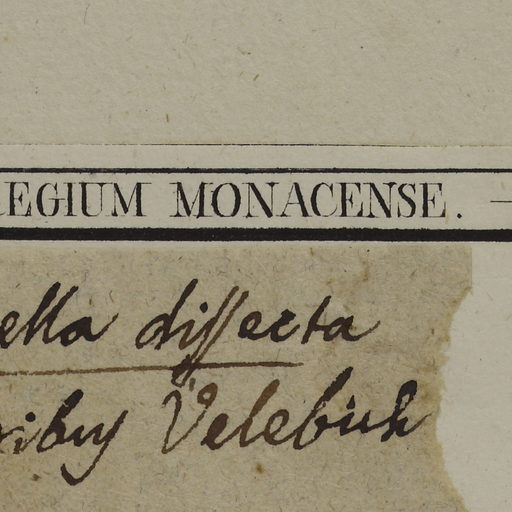 EGIUM MONACENSE. —
ella dissecta
ribus Velebich